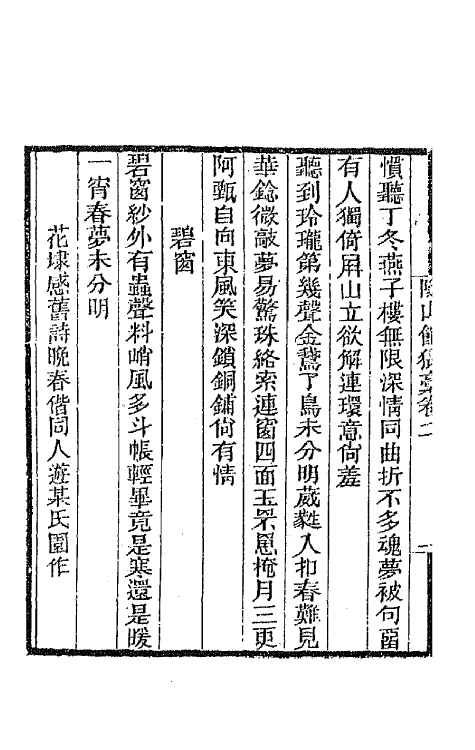 慣聽丁冬燕子樓無限深情同曲折不多魂夢被句畱
有人獨倚屏山立欲解連環意尙羞
聽到玲瓏第幾聲金鵞了鳥未分明葳蕤入扣春難見
華鈴微敲夢易驚珠絡索連窗四面玉罘罳掩月三更
阿甄自向東風笑深鎖銅鋪尙有情
碧窗
碧窗紗外有蟲聲料峭風多斗帳輕畢竟是寒還是暖
一宵春夢未分明
花埭感舊詩晚春偕同人遊某氏園作
山館
卷二